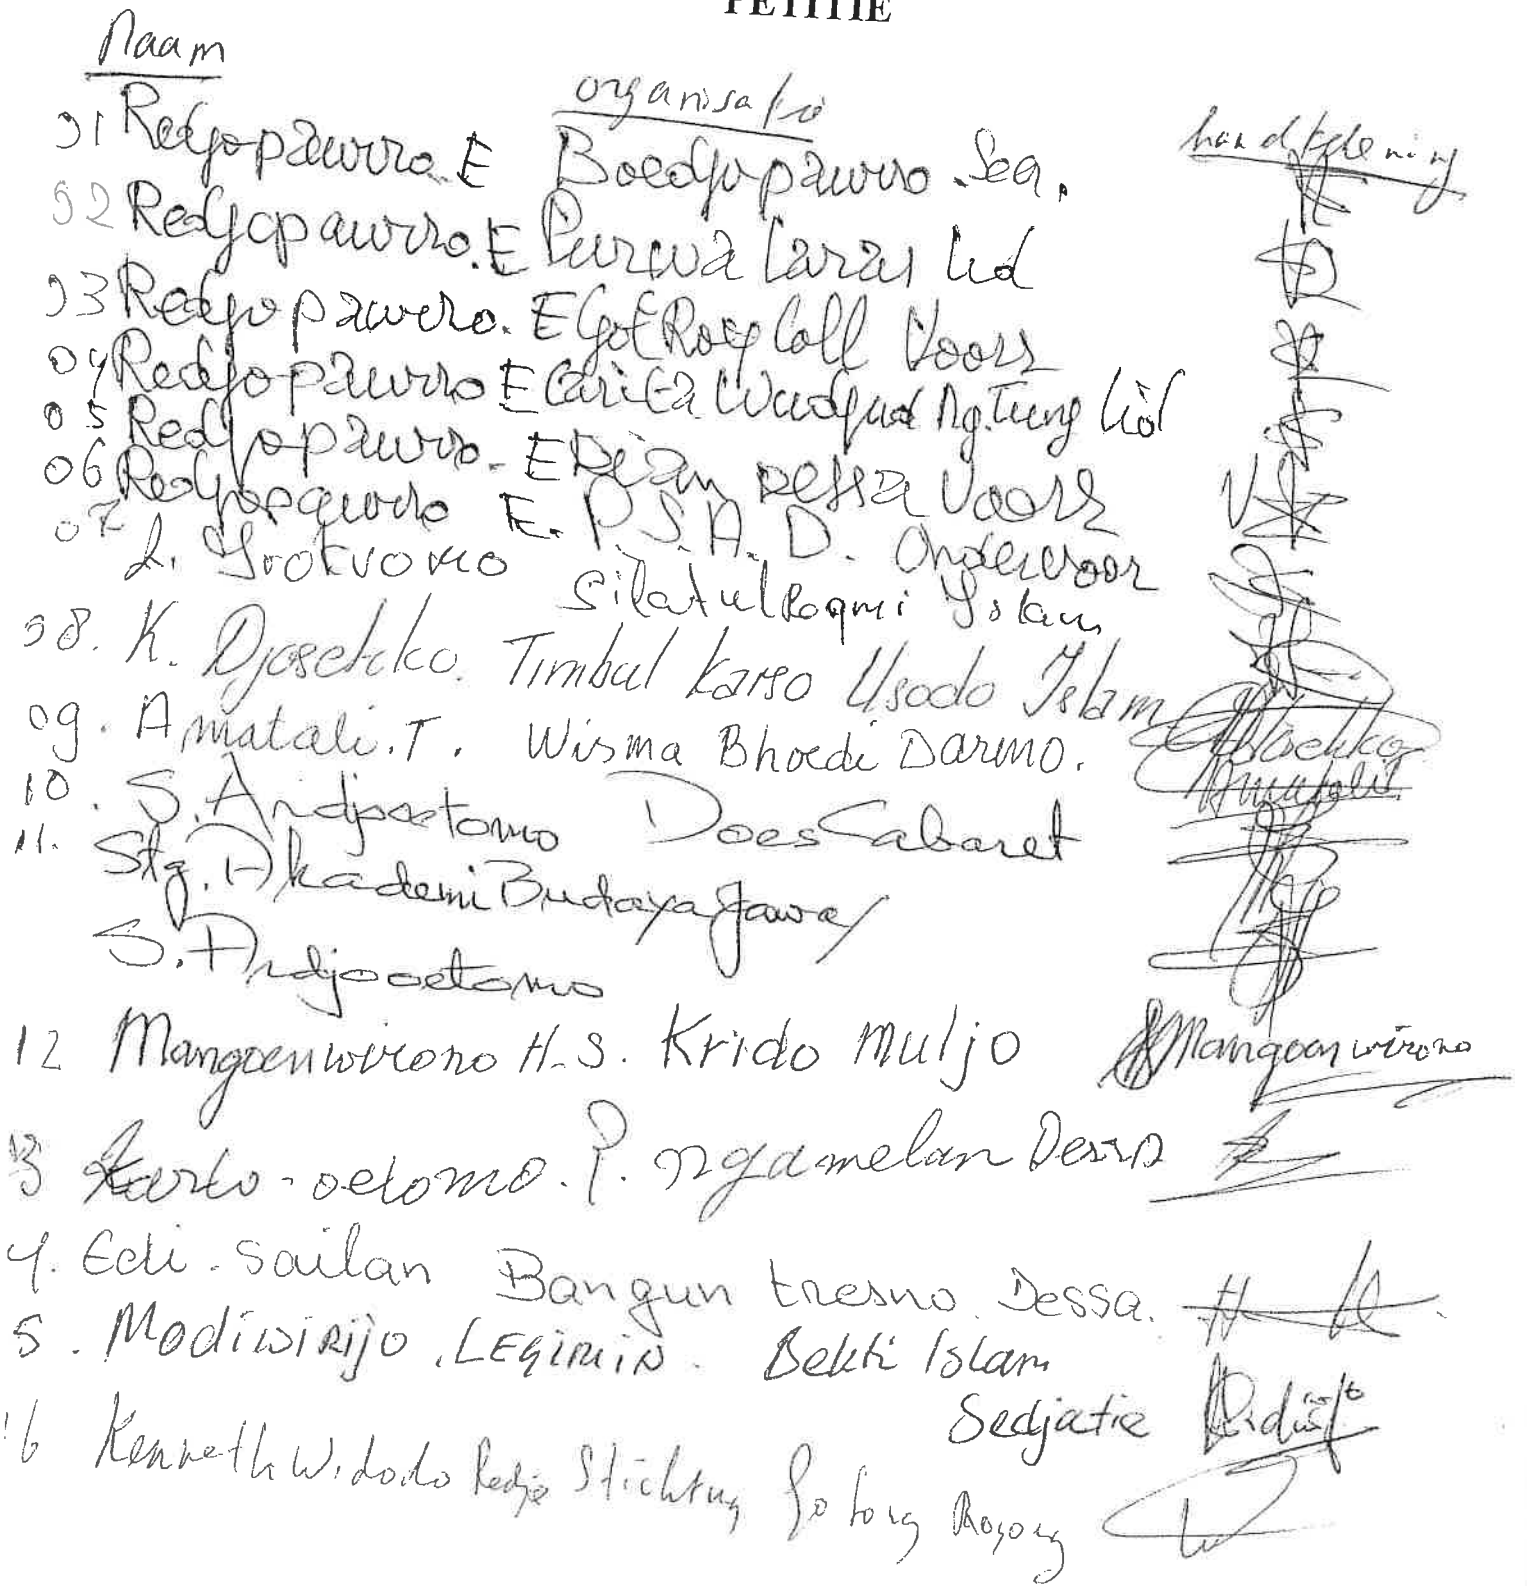 PETITIE
Naam organisatie handtekening
01 Redjopawiro. E Boedjopawiro. Sea.
02 Redjopawiro. E Purwa Laras lid
03 Redjopawiro. E Got Roy Coll Voorz
04 Redjopawiro E Carita Wudjud Ng. Tung lid
05 Redjopawiro. E Pejan Dessa Voorz
06 Redjopawiro E. P.S.A.D. Ondervoorz
07 Silatul Roqmi Islam
08. K. Djosetiko. Timbul Karso Usodo Islam
09. Amatali. T. Wisma Bhoedi Darmo. Amatali
10. S. Ardjoetomo Does Cabaret
11. Stg. Akademi Budaya Jawa
S. Ardjooetomo
12 Mangoenwirono H.S. Krido Muljo Mangoenwirono
13 Karto-oetomo. P. ngamelan Dessa
4. Edi. Sailan Bangun tresno. Dessa.
5. Modiwirijo. LEGIMIN. Bekti Islam
Sedjatie
16 Kenneth Widodo Redjo Stichting Gotong Royong